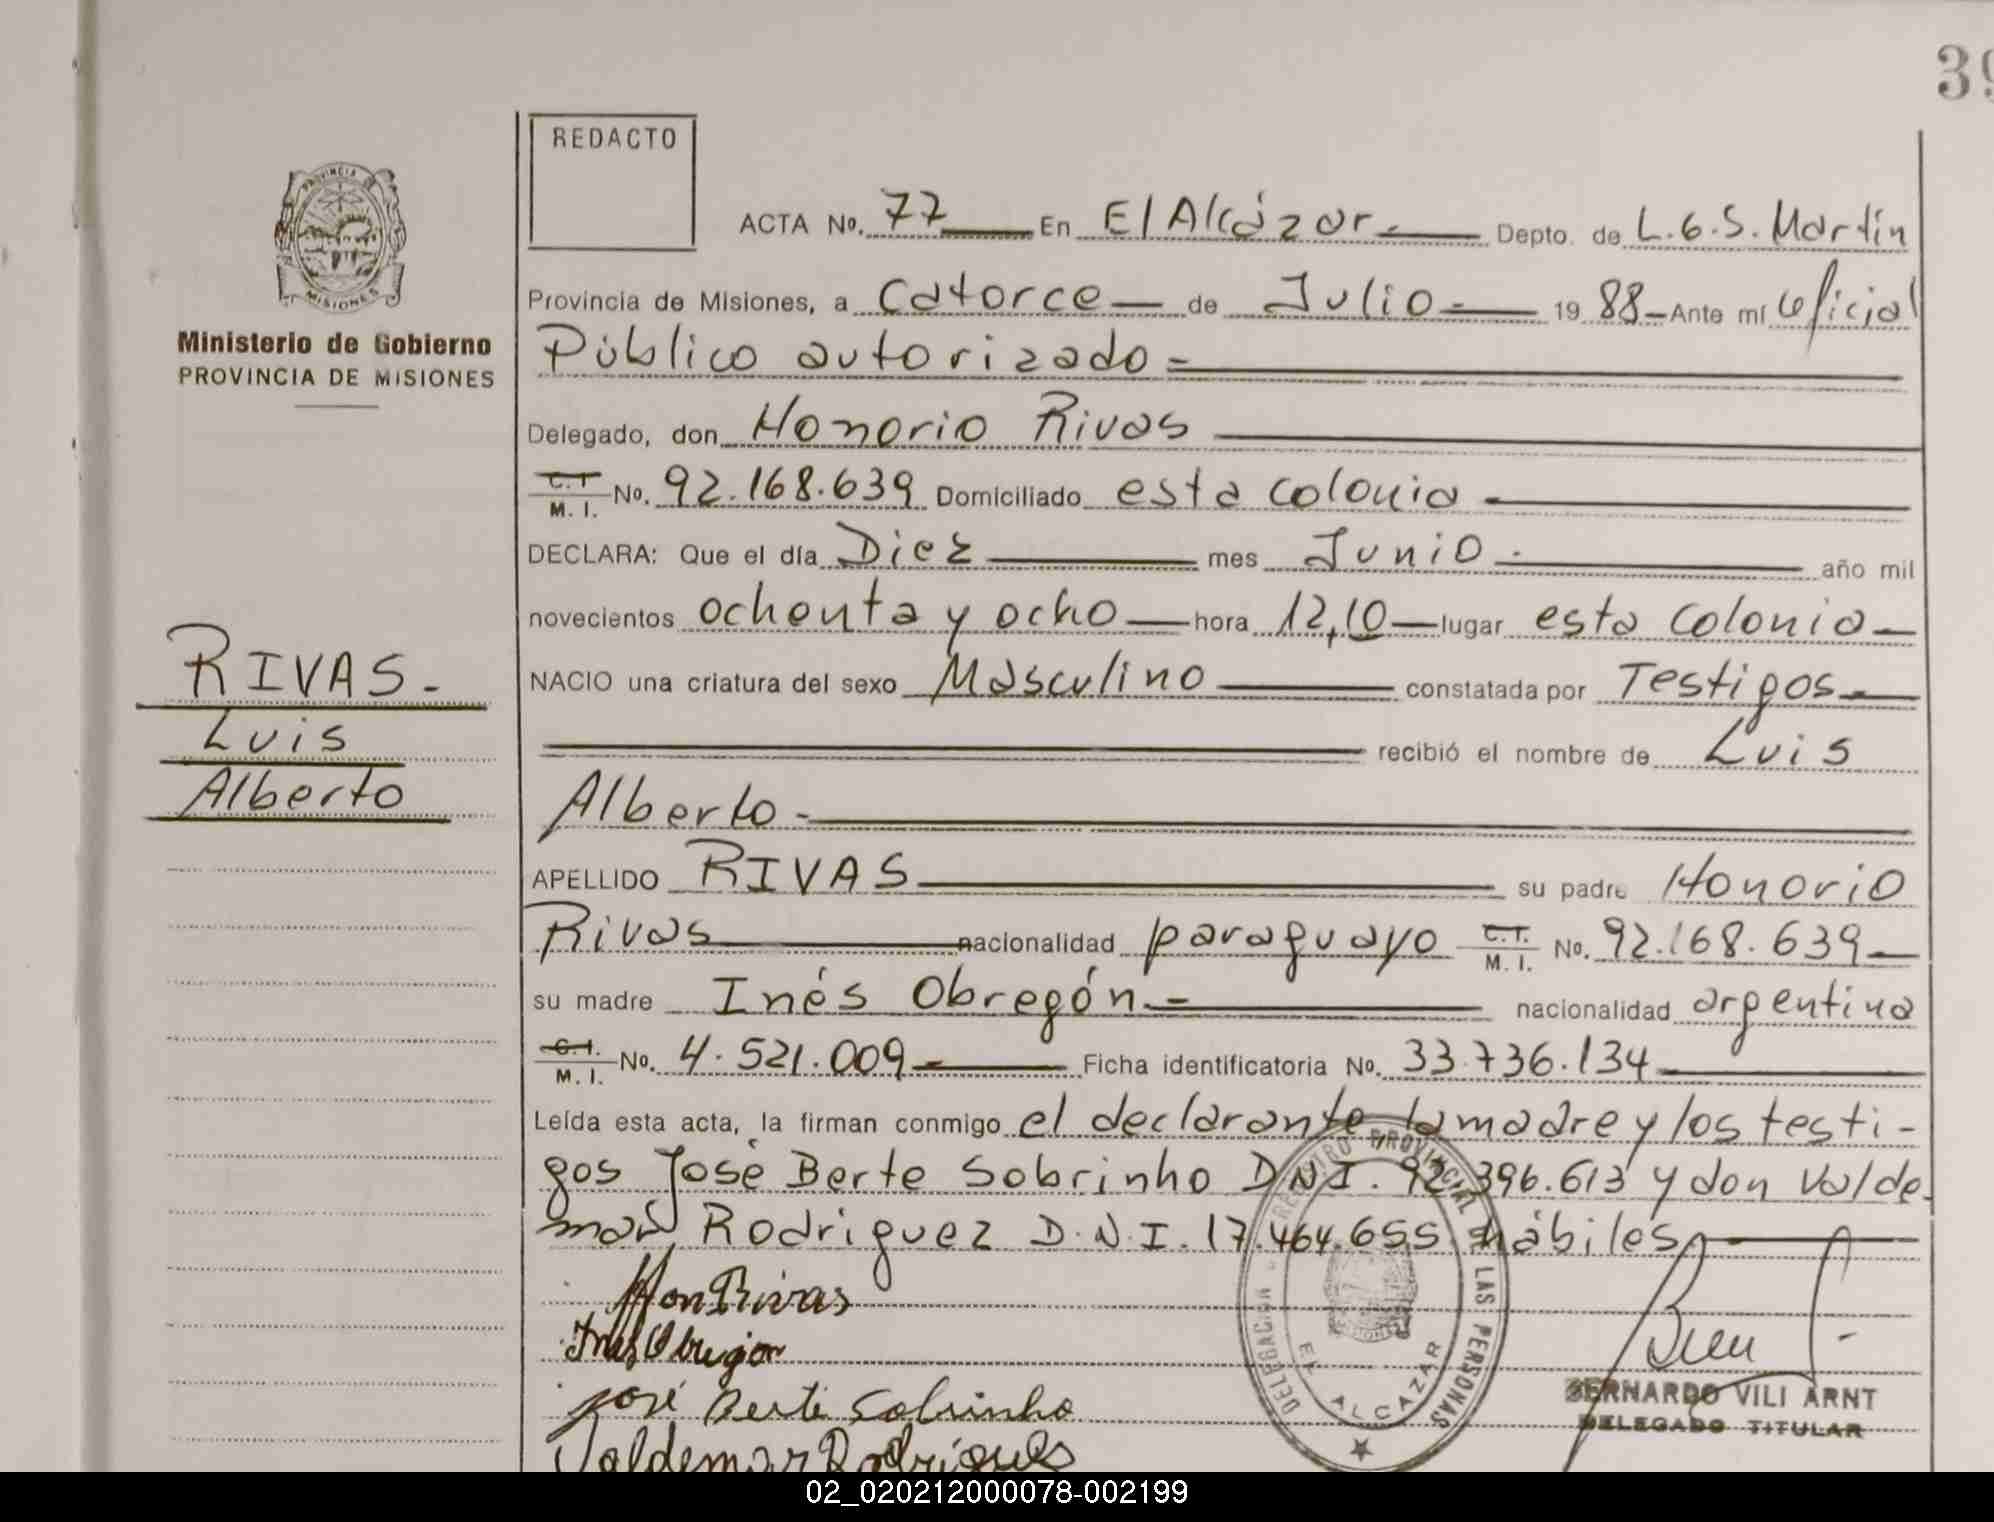 39
REDACTO
PROVINCIA DE
MISIONES
Ministerio de Gobierno
PROVINCIA DE MISIONES
ACTA No. 77 En El Alcázar.- Depto. de L.G.S. Martín
Provincia de Misiones, a Catorce de Julio 1988 Ante mí Oficial
Público autorizado
Delegado, don Honorio Rivas
C.I. M. I. No. 92.168.639 Domiciliado esta colonia
DECLARA: Que el día Diez mes Junio año mil
novecientos ochenta y ocho hora 12,10 lugar esta colonia
RIVAS.-
Luis
Alberto
NACIO una criatura del sexo Masculino constatada por Testigos
recibió el nombre de Luis
Alberto
APELLIDO RIVAS su padre Honorio
Rivas nacionalidad paraguayo C.I. M. I. No. 92.168.639
su madre Inés Obregón.- nacionalidad argentina
C.I. M. I. No. 4.521.009 Ficha identificatoria No. 33.736.134
Leída esta acta, la firman conmigo el declarante la madre y los testi-
gos José Berte Sobrinho D.N.I. 92.396.613 y don Valde
mar Rodriguez D.N.I. 17.464.655 hábiles
Hon Rivas
Ines Obregon
José Berte Sobrinho
Valdemar Rodrigues
DELEGACION REGISTRO PROVINCIAL DE LAS PERSONAS
EL ALCAZAR
BERNARDO VILI ARNT
DELEGADO TITULAR
02_020212000078-002199